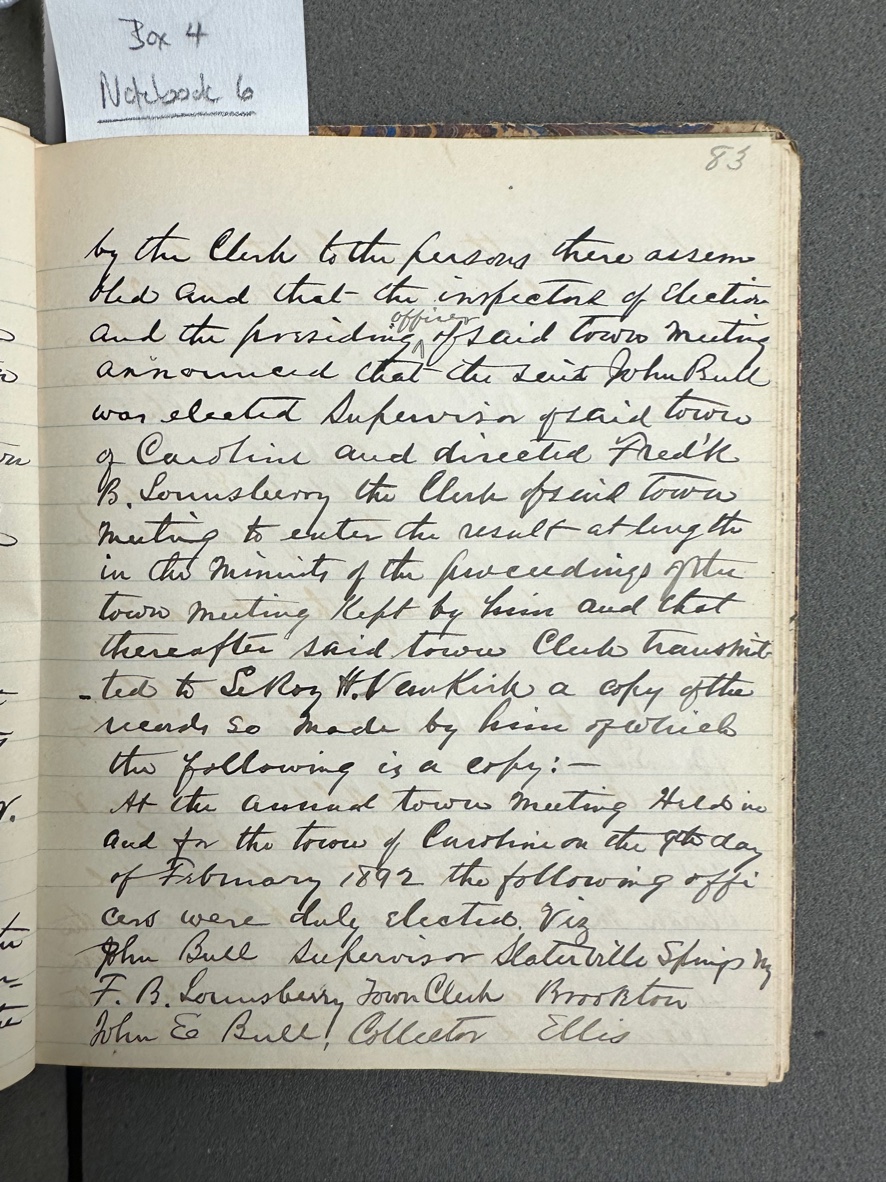 Box 4
Notebook 6
83
by the Clerk to the persons there assem
bled and that the inspectors of Election
officer
and the presiding ^ of said town Meeting
announced that the said John Bull
was elected Supervisor of said town
of Caroline and directed Fred'k
B. Lounsberry the Clerk of said town
Meeting to enter the result at length
in the Minuts of the proceedings of the
town Meeting Kept by him and that
thereafter said town Clerk transmit
-ted to LeRoy H. VanKirk a copy of the
records so made by him of which
the following is a copy:-
At the annual town Meeting Held in
and for the town of Caroline on the 9th day
of February 1892 the following offi
cers were duly elected. Viz
John Bull Supervisor Slaterville Springs Ny
F. B. Lounsberry Town Clerk Brookton
John E Bull, Collector Ellis